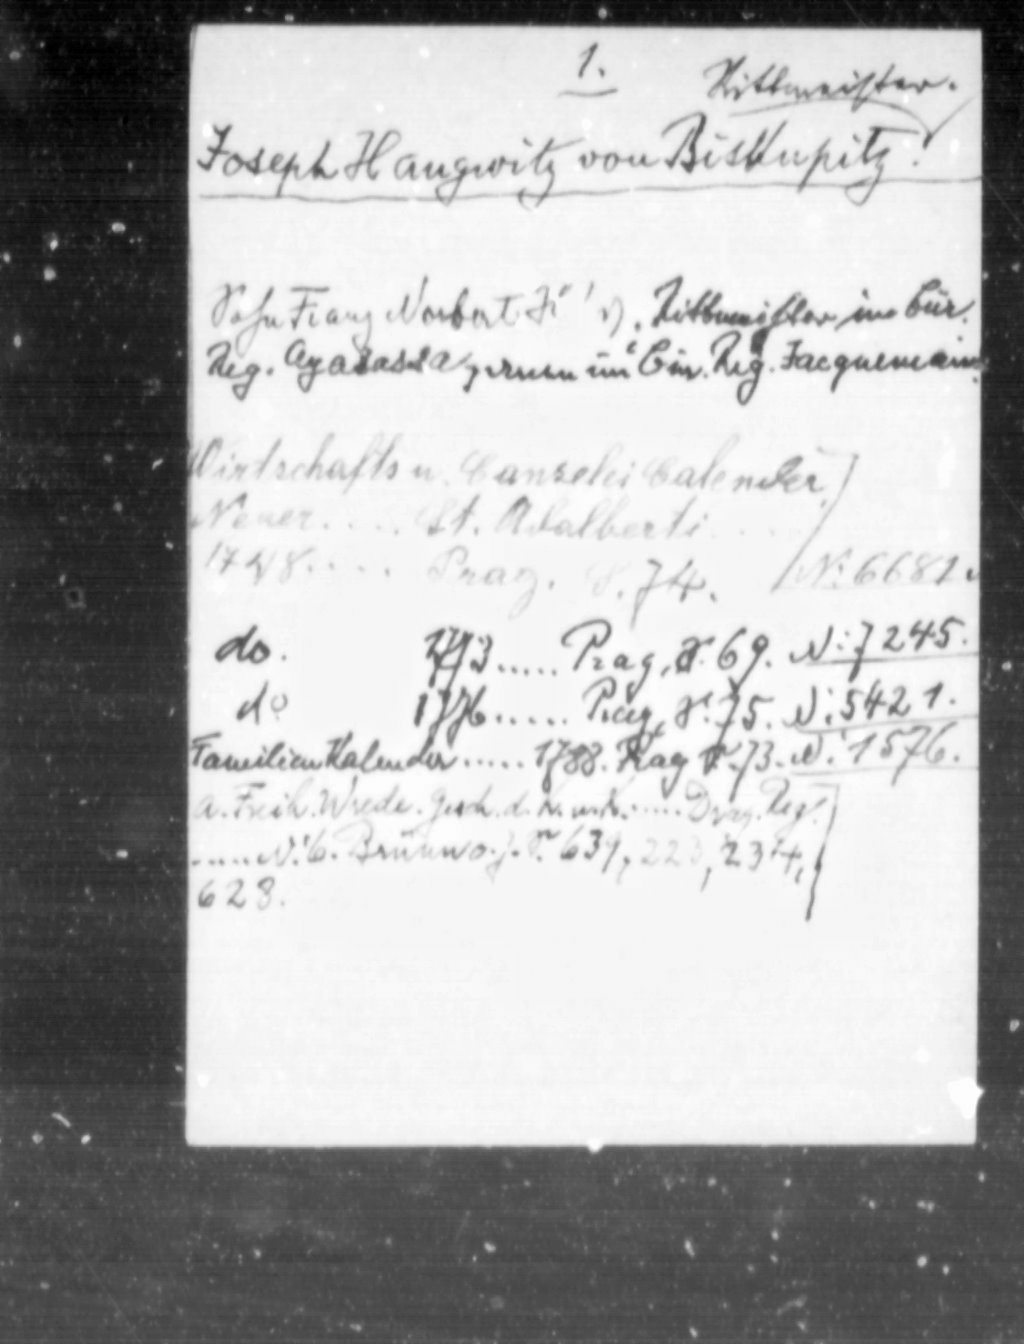 1. Rittmeister.
Joseph Haugwitz von Biskupitz.
Sohn Franz Norbert H. Rittmeister im Cür.
Reg. im Cür. Reg. Jacquemain
Wirtschafts u. Canzelei Calender
Neuer .... St. Adalberti ....
1748 .... Prag. S. 74. N: 6681.
do. ..... Prag, S. 69. N: 7245.
do 1776 ..... Prag, S. 75. N: 5421.
Familien Kalender ..... 1788. Prag S. 73. N: 1576.
A. Freih. Wrede. Gesch. d. k. u. k. ..... Drag. Reg.
..... N: 6. Brünn o. J. S. 639, 223, 234,
628.